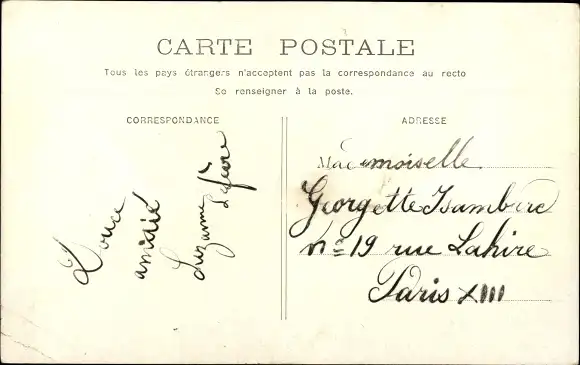 CARTE POSTALE
Tous les pays étrangers n'acceptent pas la correspondance au recto
Se renseigner à la poste.
CORRESPONDANCE
Douce
amitié
Suzanne
Lefèvre
ADRESSE
Mademoiselle
Georgette Isambert
N° 19 rue Lahire
Paris XIII